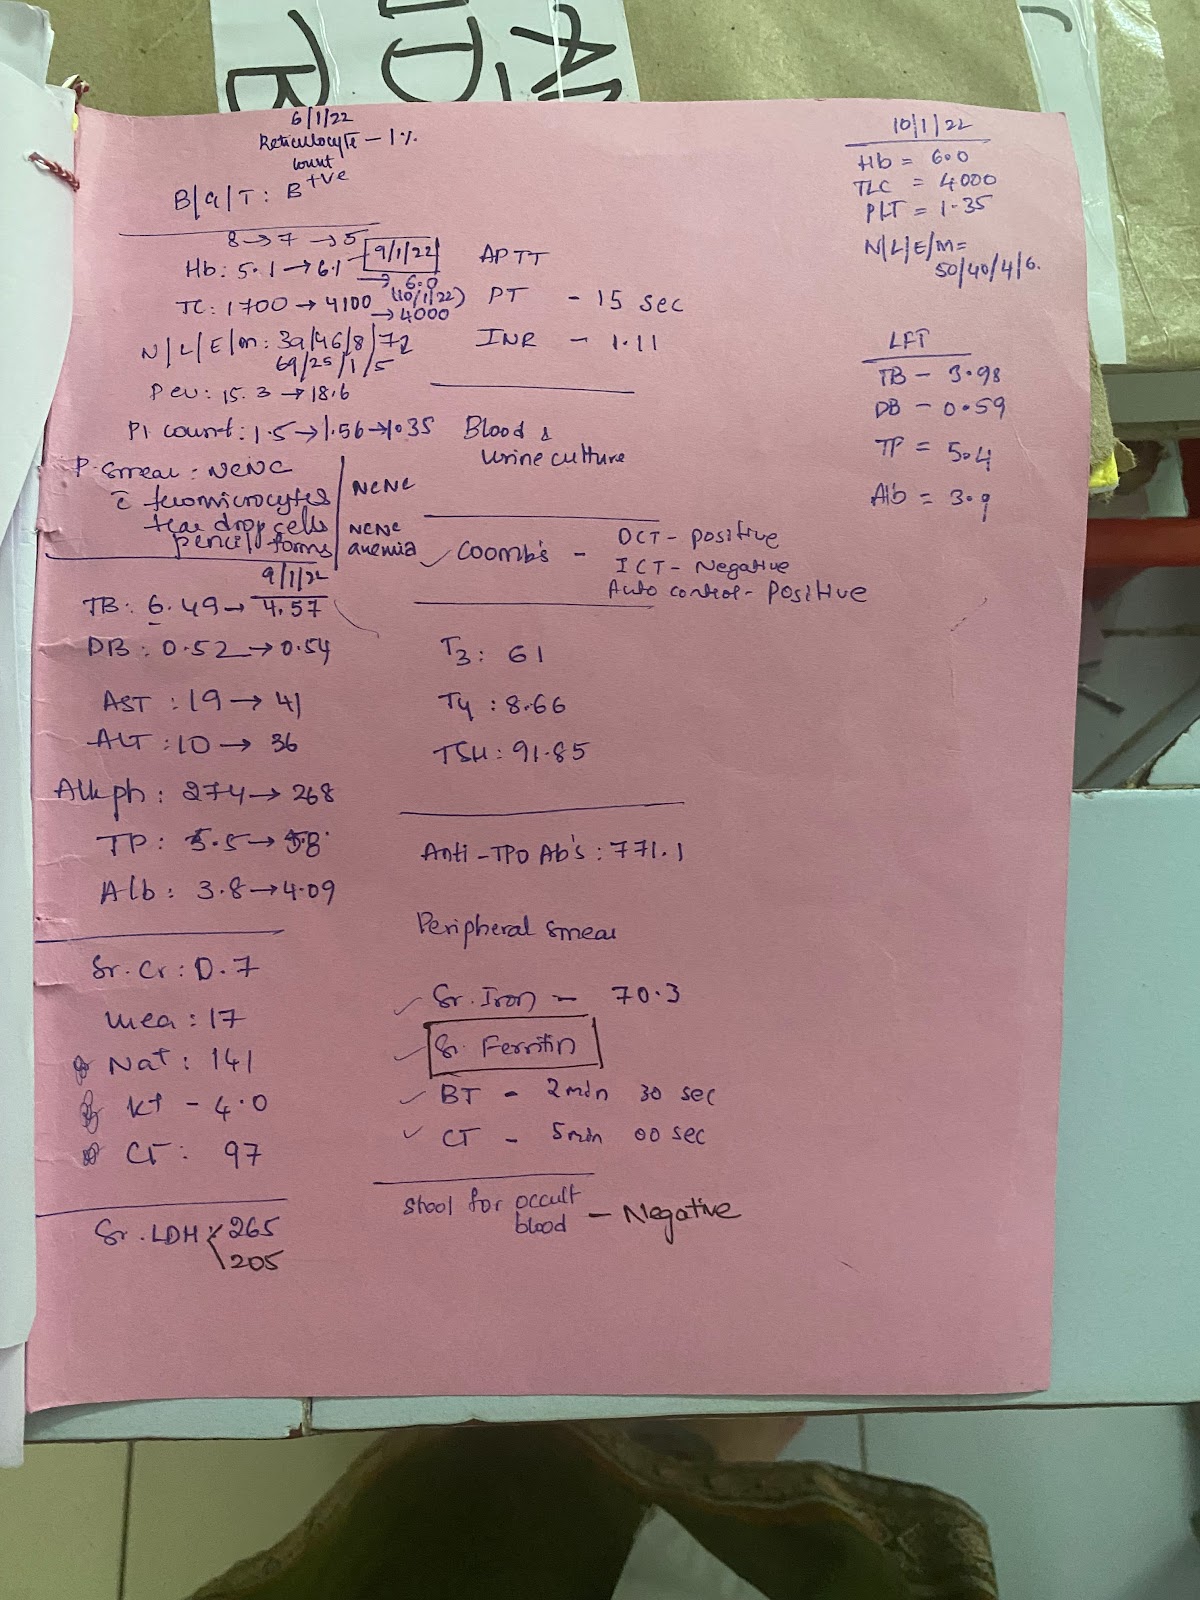 6/1/22
Reticulocyte - 1%
count
B/G/T: B +ve
8→7→5
Hb: 5.1→6.1 9/1/22
→ 6.0
TC: 1700→4100 (10/1/22)
→4000
N/L/E/M: 39/46/8/72
69/25/1/5
PCV: 15.3→18.6
Pl count: 1.5→1.56→1.35
P. Smear: NCNC
c̄
tear drop cells
pencil forms
NCNC
NCNC
anemia
9/1/22
TB: 6.49→4.57
DB: 0.52→0.54
AST: 19→41
ALT: 10→36
Alk ph: 274→268
TP: 5.5→5.8
Alb: 3.8→4.09
Sr. Cr: 0.7
urea: 17
Na+: 141
K+ - 4.0
Cl-: 97
Sr. LDH 265
205
APTT
PT - 15 sec
INR - 1.11
Blood &
urine culture
Coomb's - DCT - positive
ICT - Negative
Auto control - Positive
T3: 61
T4: 8.66
TSH: 91.85
Anti-TPO Ab's: 771.1
Peripheral smear
Sr. Iron - 70.3
Sr. Ferritin
BT - 2min 30 sec
CT - 5min 00 sec
Stool for occult
blood - Negative
10/1/22
Hb = 6.0
TLC = 4000
PLT = 1.35
N/L/E/M=
50/40/4/6.
LFT
TB - 3.98
DB - 0.59
TP = 5.4
Alb = 3.9